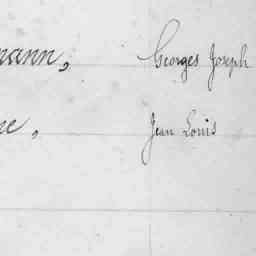 mann, Georges Joseph
ne, Jean Louis